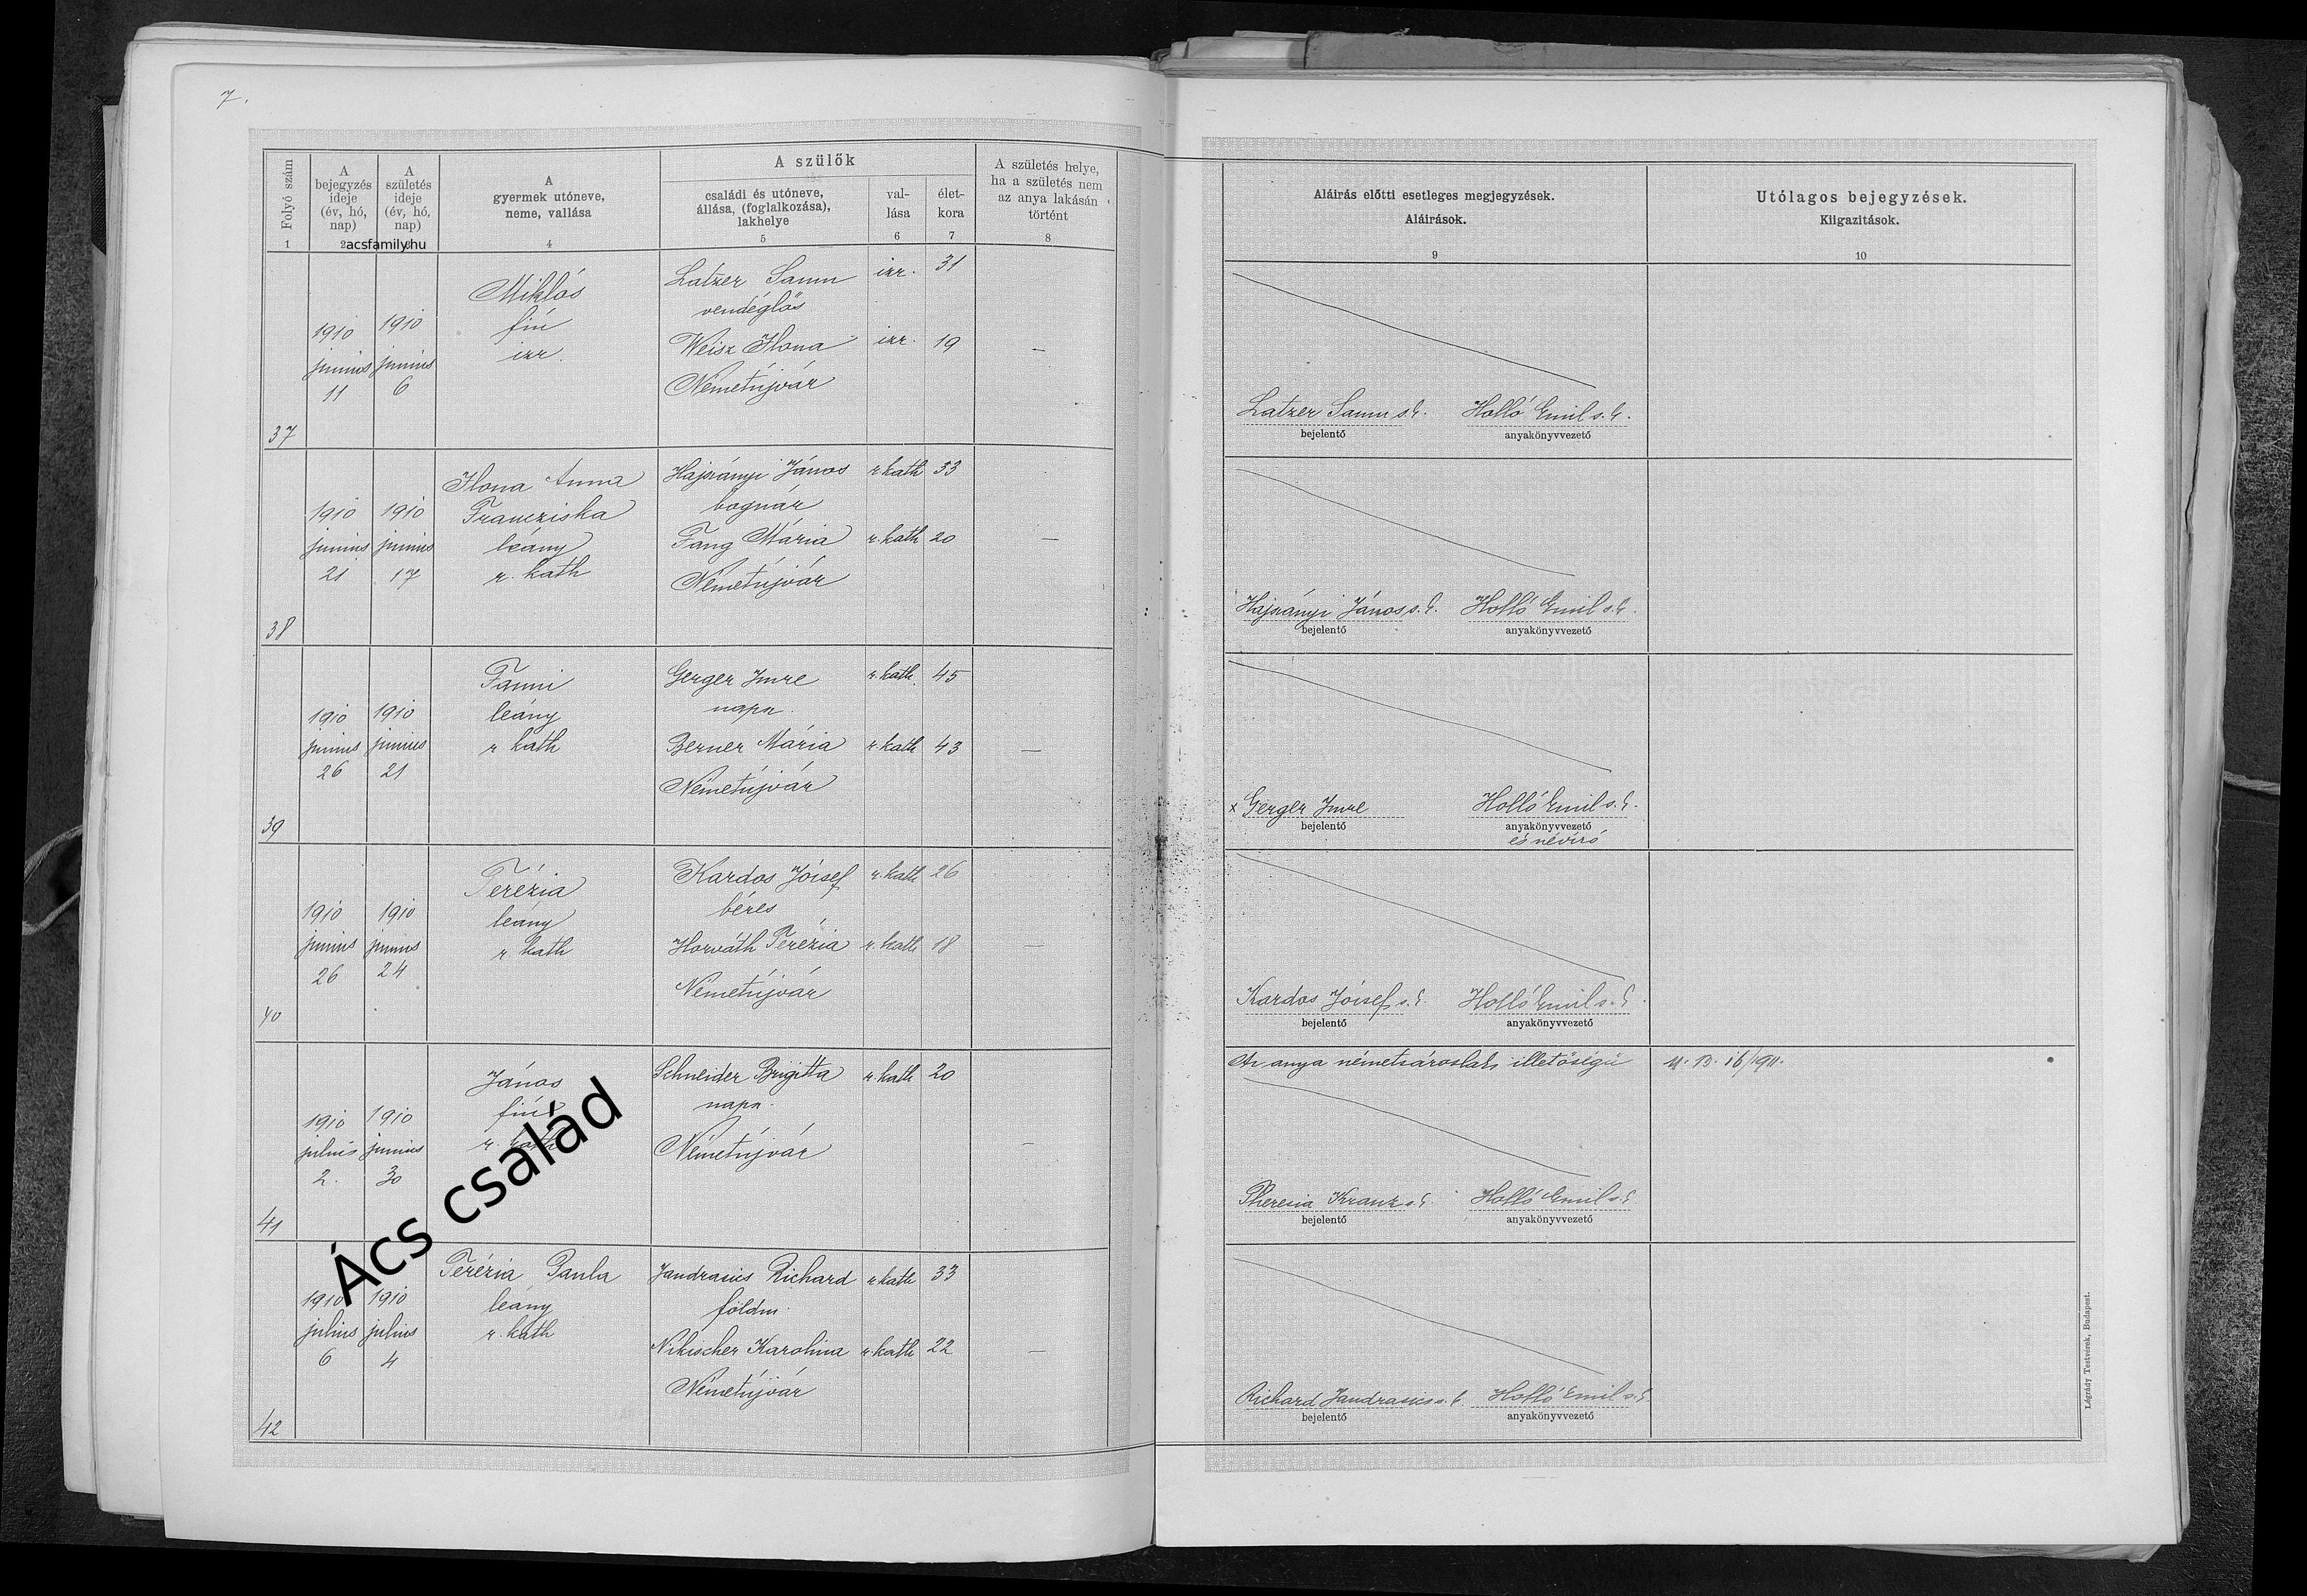 7.
Folyó szám
A bejegyzés ideje (év, hó, nap)
A születés ideje (év, hó, nap)
A gyermek utóneve, neme, vallása
A szülők
családi és utóneve, állása, (foglalkozása), lakhelye
val-lása
élet-kora
A születés helye, ha a születés nem az anya lakásán történt
Aláirás előtti esetleges megjegyzések.
Aláirások.
Utólagos bejegyzések.
Kiigazitások.
1 2 acsfamily.hu 4 5 6 7 8 9 10
37
1910 junius 11
1910 junius 6
Miklós
fiú
izr.
Latzer Samu izr. 31
vendéglős
Weisz Ilona izr. 19 —
Németújvár
Latzer Samu s. k. Holló Emil s. k.
bejelentő anyakönyvvezető
38
1910 junius 21
1910 junius 17
Ilona Anna
Francziska
leány
r. kath
Hajsányi János r. kath 33
bognár
Fang Mária r. kath 20 —
Németújvár
Hajsányi János s. k. Holló Emil s. k.
bejelentő anyakönyvvezető
39
1910 junius 26
1910 junius 21
Fanni
leány
r kath
Gerger Imre r. kath. 45
napsz.
Berner Mária r. kath 43 —
Németújvár
x Gerger Imre Holló Emil s. k.
bejelentő anyakönyvvezető
és névíró
40
1910 junius 26
1910 junius 24
Terézia
leány
r kath
Kardos József r. kath 26
béres
Horváth Terézia r. kath 18 —
Németújvár
Kardos József s. k. Holló Emil s. k.
bejelentő anyakönyvvezető
41
1910 julius 2.
1910 junius 30
János
fiú
r. kath
Schneider Brigitta r. kath 20
napsz.
Németújvár —
Az anya németsároslaki illetőségü
Theresia Kranz s. k. Holló Emil s. k.
bejelentő anyakönyvvezető
42
1910 julius 6
1910 julius 4
Terézia Paula
leány
r. kath
Jandrasics Richard r. kath 33
földm.
Nikischer Karolina r. kath 22 —
Németújvár
Richard Jandrasics s. k. Holló Emil s. k.
bejelentő anyakönyvvezető
Légrády Testvérek, Budapest.
Ács család